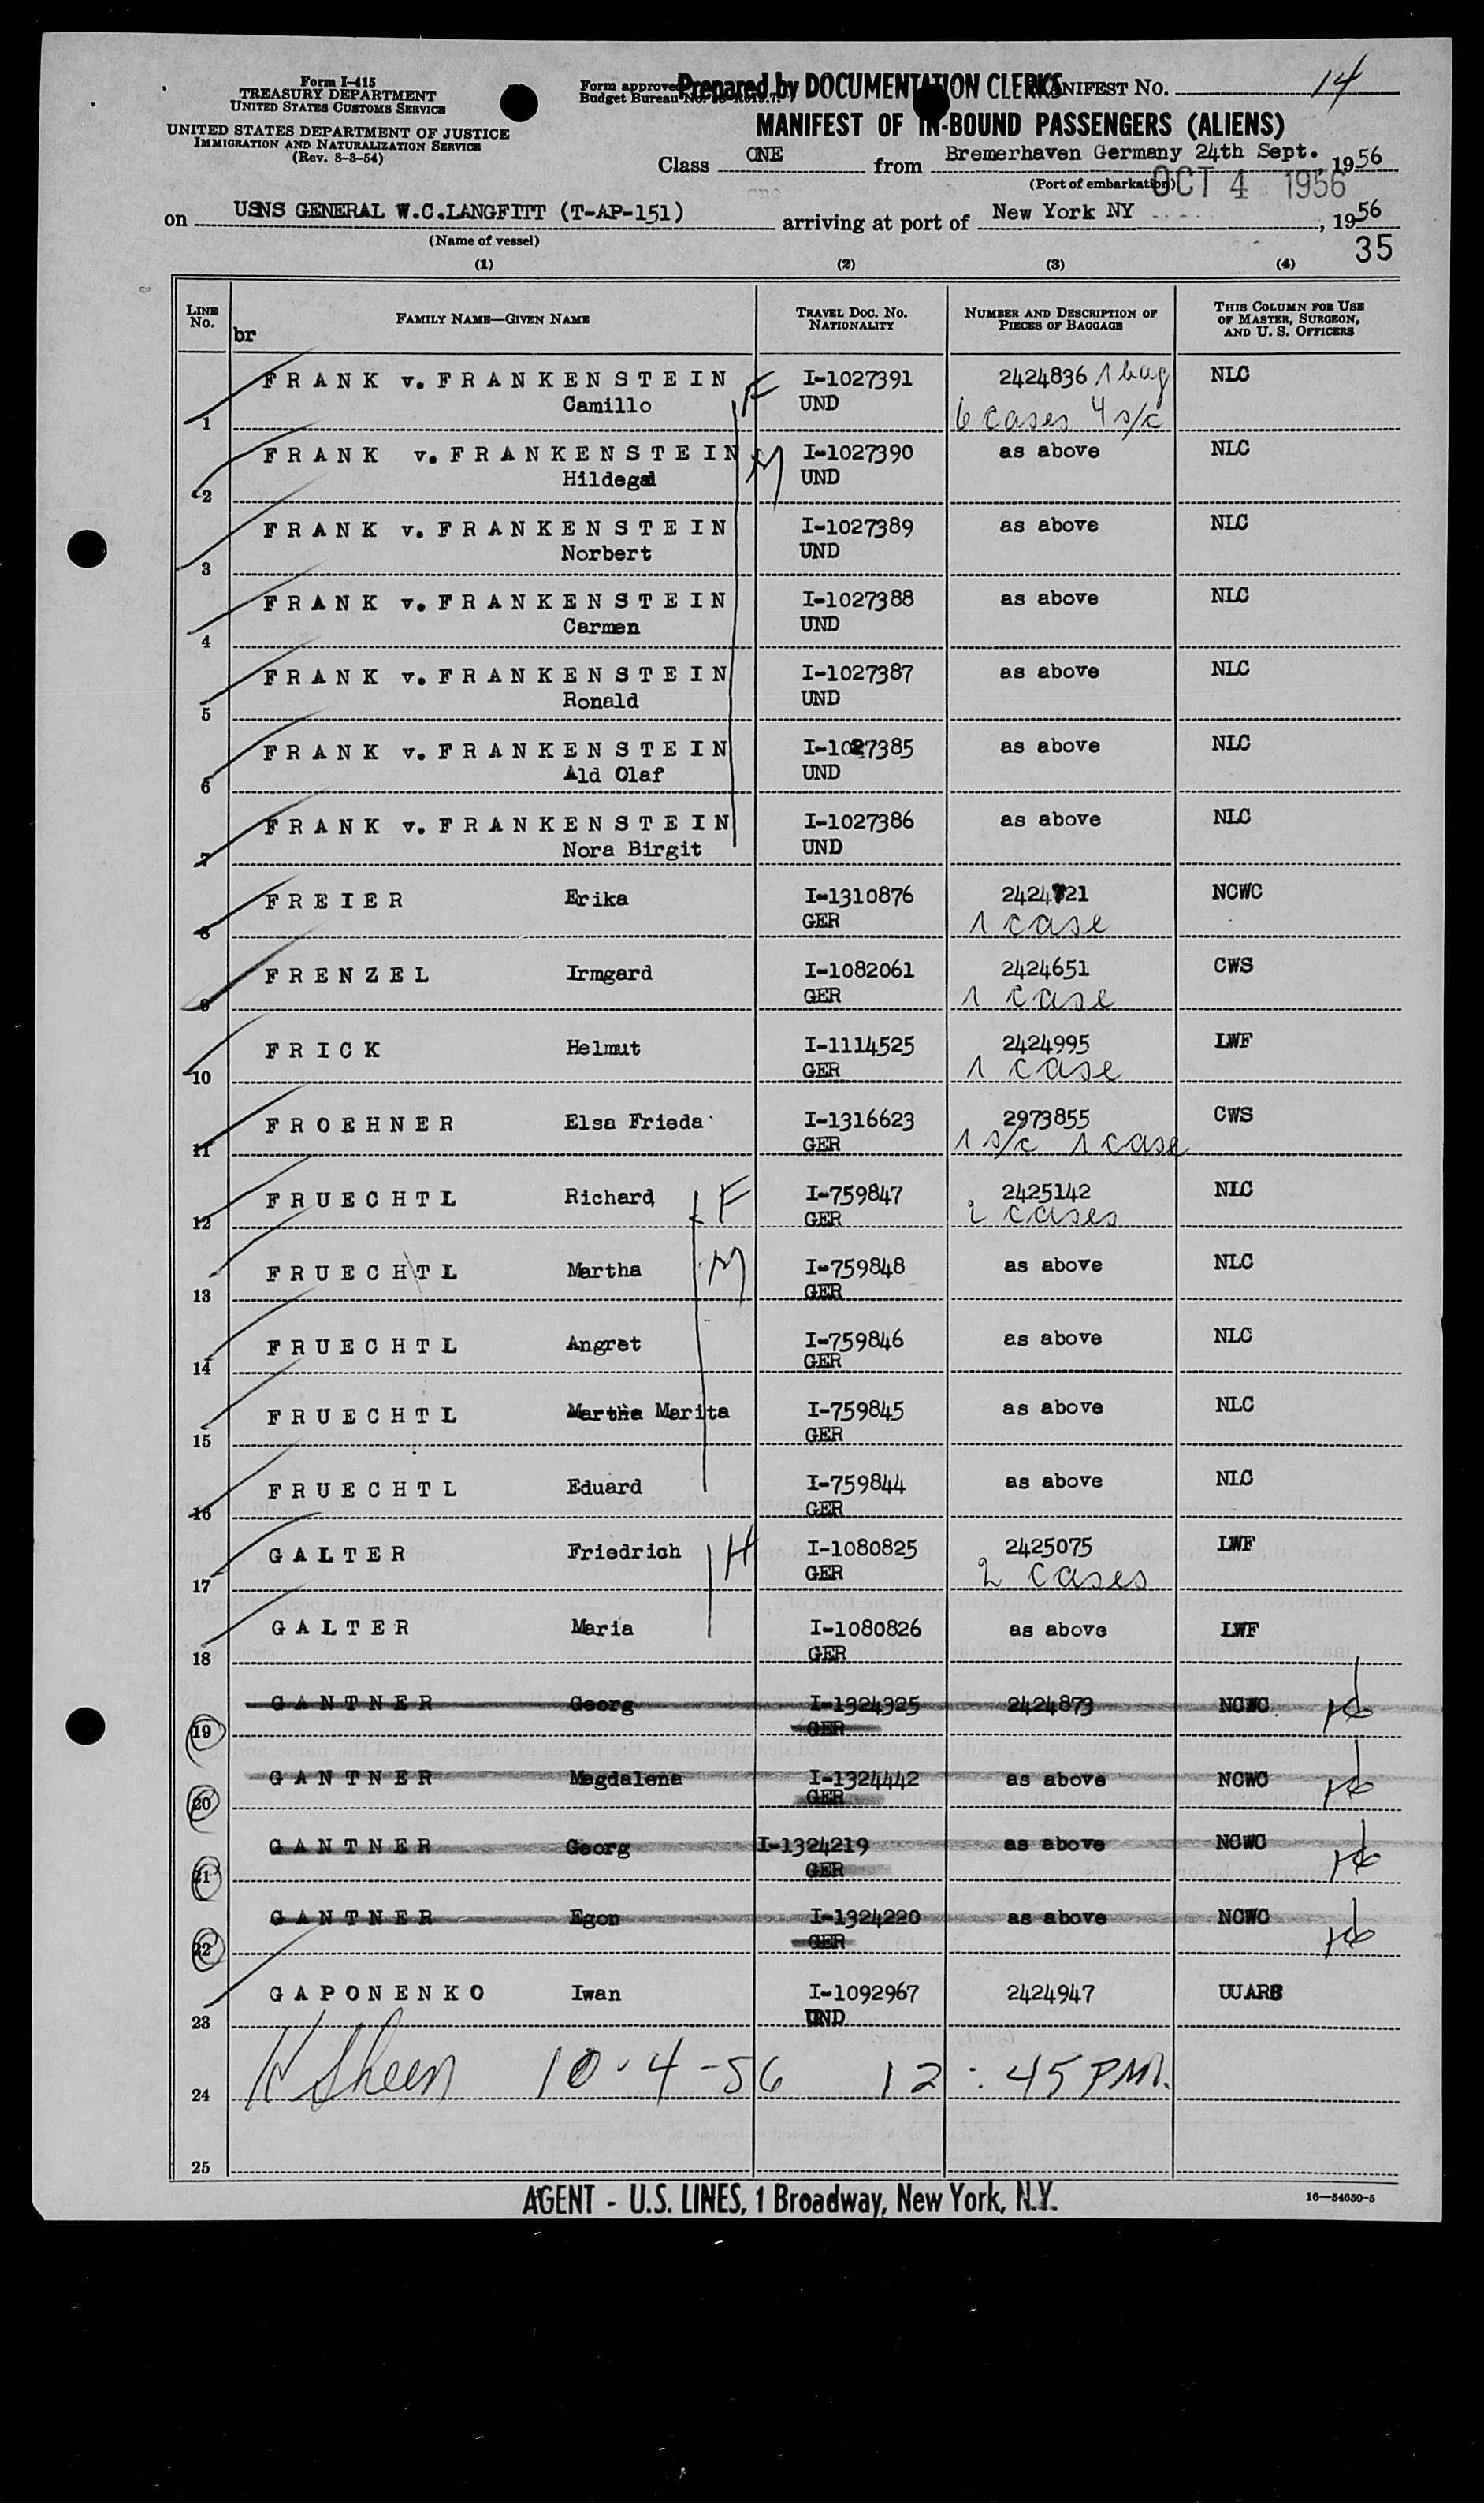 Form I-415
TREASURY DEPARTMENT
UNITED STATES CUSTOMS SERVICE
UNITED STATES DEPARTMENT OF JUSTICE
IMMIGRATION AND NATURALIZATION SERVICE
(Rev. 8-3-54)
Form approved
Budget Bureau No.
Prepared by DOCUMENTATION CLERKS
MANIFEST NO. 14
MANIFEST OF IN-BOUND PASSENGERS (ALIENS)
Class ONE from Bremerhaven Germany 24th Sept., 1956
one
(Port of embarkation)
OCT 4 1956
on USNS GENERAL W.C.LANGFITT (T-AP-151) arriving at port of New York NY, 1956
(Name of vessel)
35
(1) (2) (3) (4)
LINE NO. FAMILY NAME—GIVEN NAME TRAVEL DOC. NO. NATIONALITY NUMBER AND DESCRIPTION OF PIECES OF BAGGAGE THIS COLUMN FOR USE OF MASTER, SURGEON, AND U. S. OFFICERS
br
FRANK v. FRANKENSTEIN F I-1027391 2424836 1 bag NLC
1 Camillo UND 6 cases 4 s/c
FRANK v. FRANKENSTEIN M I-1027390 as above NLC
2 Hildegad UND
FRANK v. FRANKENSTEIN I-1027389 as above NLC
3 Norbert UND
FRANK v. FRANKENSTEIN I-1027388 as above NLC
4 Carmen UND
FRANK v. FRANKENSTEIN I-1027387 as above NLC
5 Ronald UND
FRANK v. FRANKENSTEIN I-1027385 as above NLC
6 Ald Olaf UND
FRANK v. FRANKENSTEIN I-1027386 as above NLC
7 Nora Birgit UND
FREIER Erika I-1310876 2424721 NCWC
8 GER 1 case
FRENZEL Irmgard I-1082061 2424651 CWS
9 GER 1 case
FRICK Helmut I-1114525 2424995 LWF
10 GER 1 case
FROEHNER Elsa Frieda I-1316623 2973855 CWS
11 GER 1 s/c 1 case
FRUECHTL Richard F I-759847 2425142 NLC
12 GER 2 cases
FRUECHTL Martha M I-759848 as above NLC
13 GER
FRUECHTL Angret I-759846 as above NLC
14 GER
FRUECHTL Martha Marita I-759845 as above NLC
15 GER
FRUECHTL Eduard I-759844 as above NLC
16 GER
GALTER Friedrich H I-1080825 2425075 LWF
17 GER 2 cases
GALTER Maria I-1080826 as above LWF
18 GER
GANTNER Georg I-1324325 2424873 NCWC
19 GER
GANTNER Magdalena I-1324442 as above NCWC
20 GER
GANTNER Georg I-1324219 as above NCWC
21 GER
GANTNER Egon I-1324220 as above NCWC
22 GER
GAPONENKO Iwan I-1092967 2424947 UUARS
23 UND
24 Sheen 10-4-56 12:45 PM.
25
AGENT - U.S. LINES, 1 Broadway, New York, N.Y.
16—54650-5